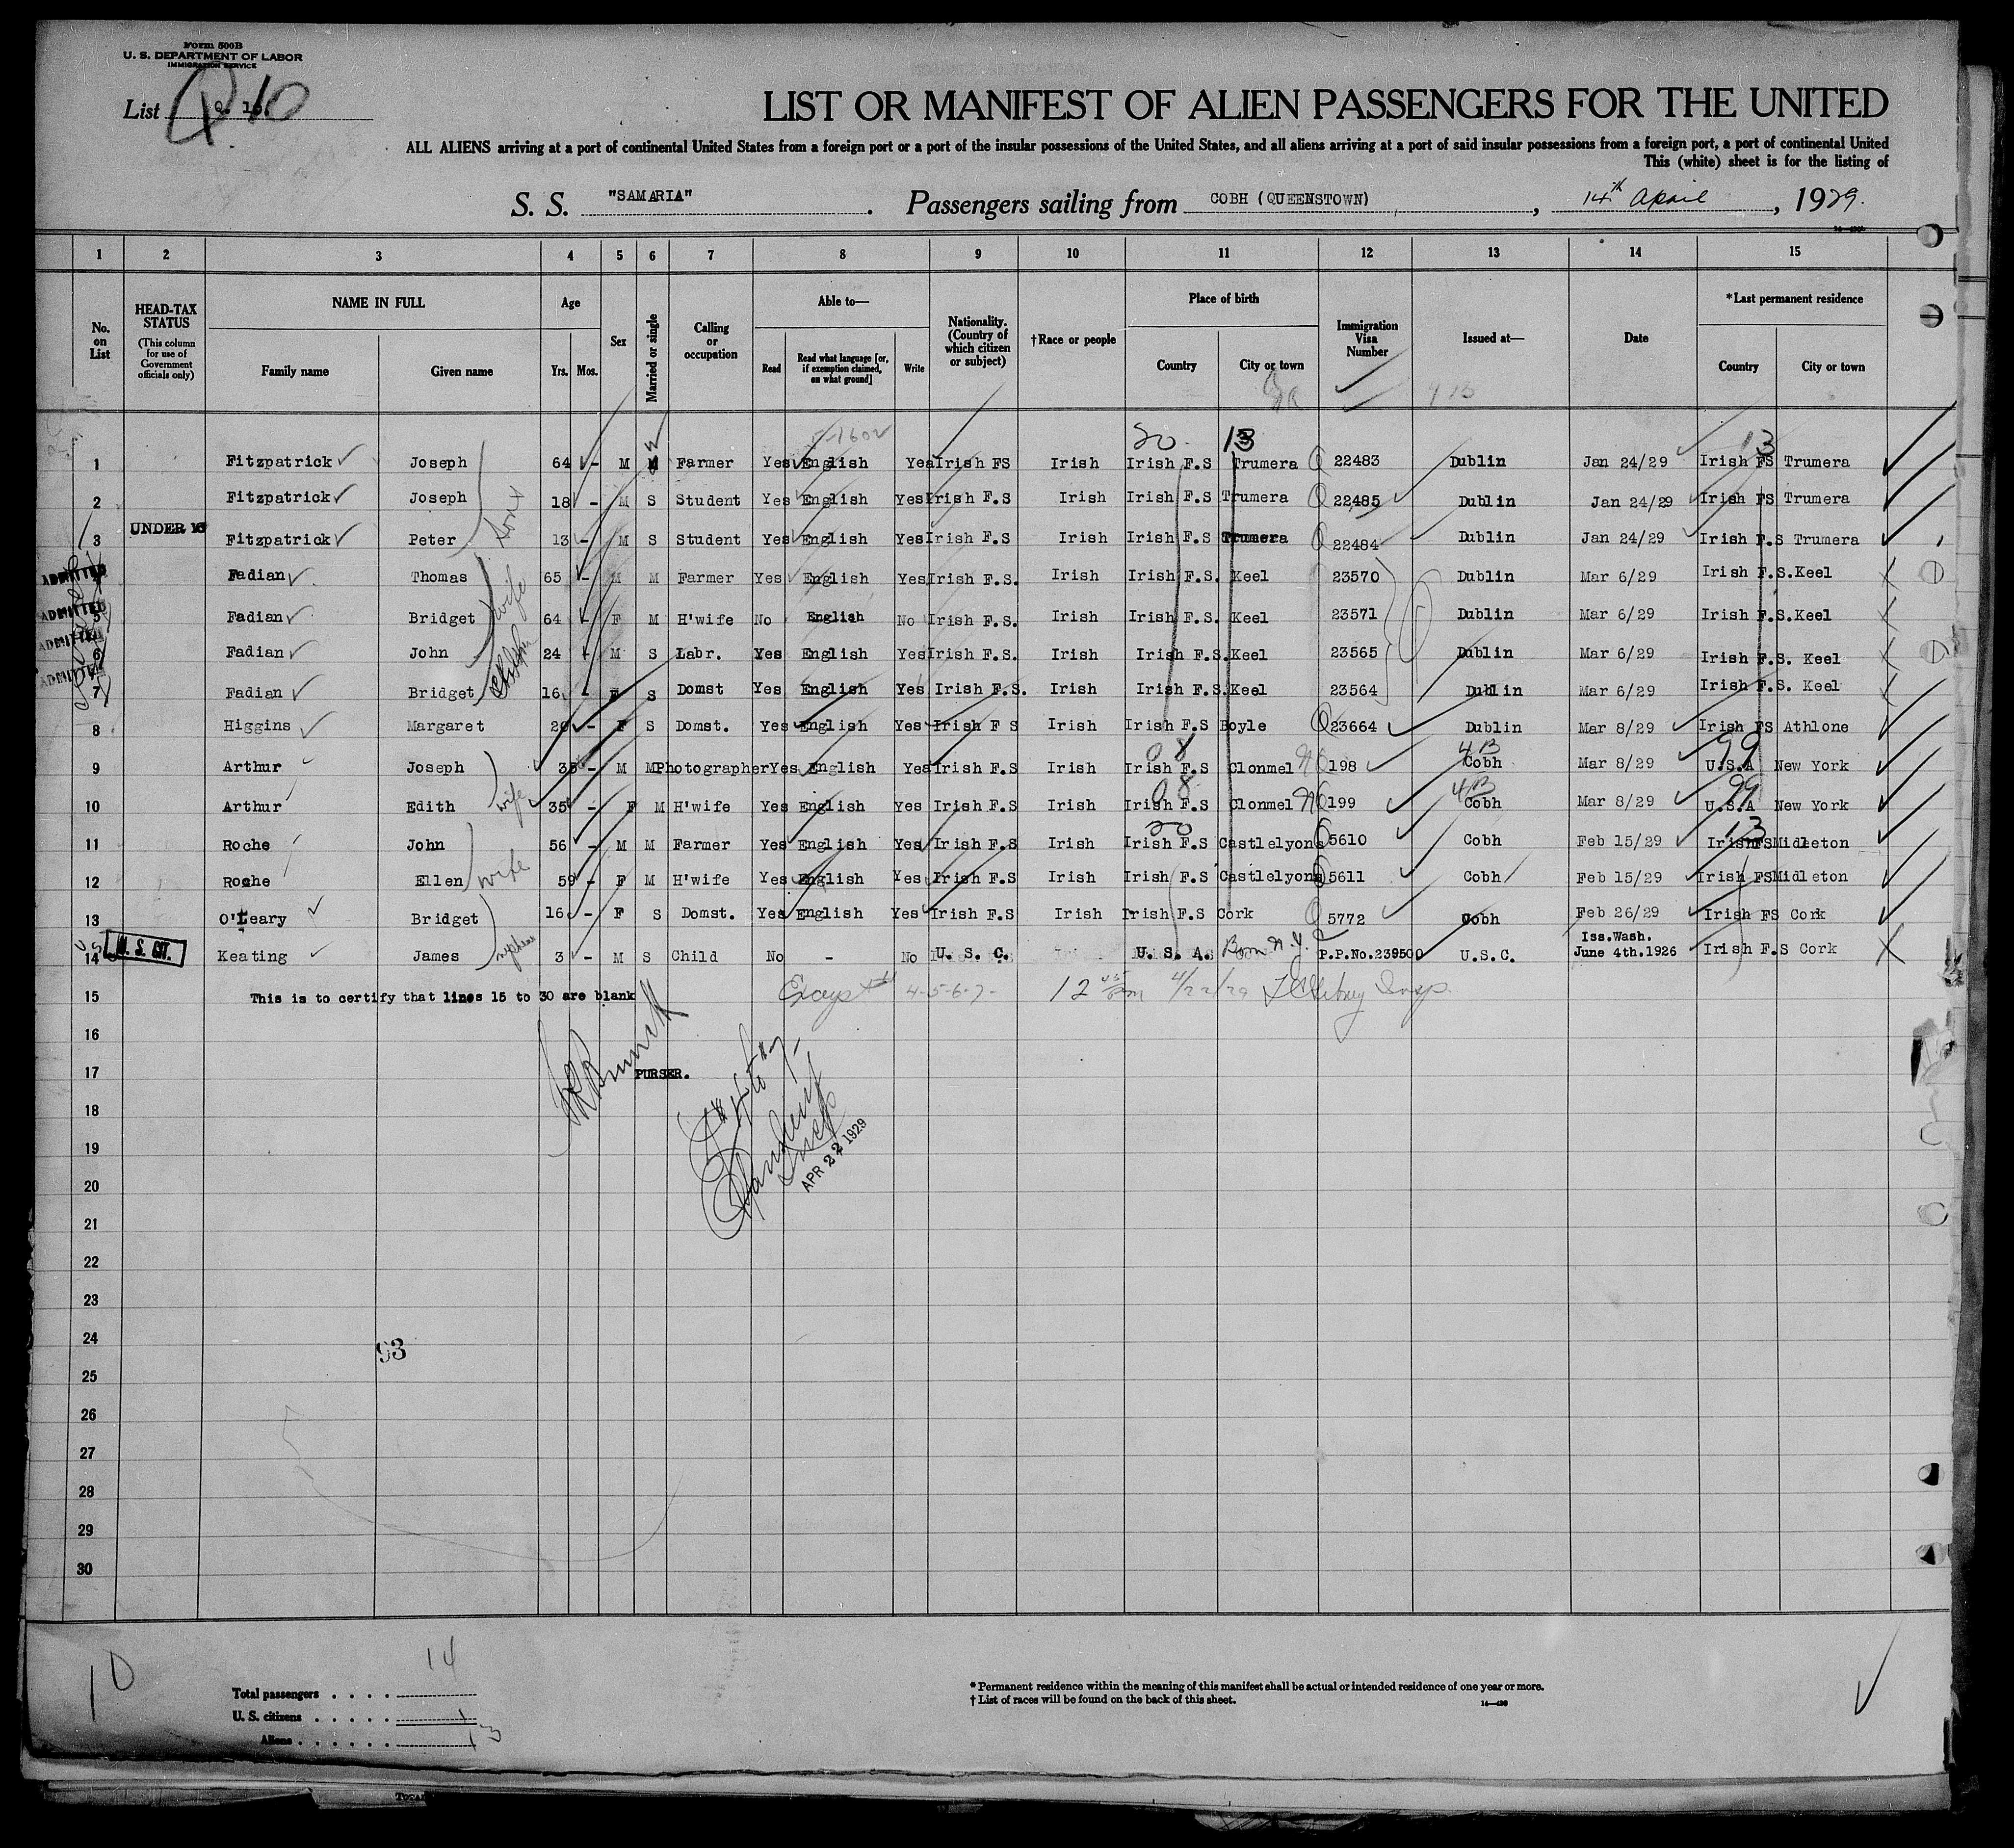 Form 500B
U. S. DEPARTMENT OF LABOR
IMMIGRATION SERVICE
List 10
LIST OR MANIFEST OF ALIEN PASSENGERS FOR THE UNITED
ALL ALIENS arriving at a port of continental United States from a foreign port or a port of the insular possessions of the United States, and all aliens arriving at a port of said insular possessions from a foreign port, a port of continental United
This (white) sheet is for the listing of
S. S. "SAMARIA". Passengers sailing from COBH (QUEENSTOWN), 14th April, 1929.
1 2 3 4 5 6 7 8 9 10 11 12 13 14 15
No. on List
HEAD-TAX STATUS (This column for use of Government officials only)
NAME IN FULL Family name Given name
Age Yrs. Mos.
Sex
Married or single
Calling or occupation
Able to— Read Read what language [or, if exemption claimed, on what ground] Write
Nationality. (Country of which citizen or subject)
†Race or people
Place of birth Country City or town
Immigration Visa Number
Issued at—
Date
*Last permanent residence Country City or town
20 13 13
1 Fitzpatrick Joseph 64 - M M Farmer Yes English Yes Irish FS Irish Irish F.S Trumera 22483 Dublin Jan 24/29 Irish FS Trumera
2 Fitzpatrick Joseph 18 - M S Student Yes English Yes Irish F.S Irish Irish F.S Trumera 22485 Dublin Jan 24/29 Irish FS Trumera
sons
UNDER 16
3 Fitzpatrick Peter 13 - M S Student Yes English Yes Irish F.S Irish Irish F.S Trumera 22484 Dublin Jan 24/29 Irish F.S Trumera
ADMITTED Fadian Thomas 65 - M M Farmer Yes English Yes Irish F.S. Irish Irish F.S. Keel 23570 Dublin Mar 6/29 Irish F.S. Keel
wife
ADMITTED 5 Fadian Bridget 64 - F M H'wife No English No Irish F.S. Irish Irish F.S. Keel 23571 Dublin Mar 6/29 Irish F.S. Keel
ADMITTED 6 Fadian John 24 - M S Labr. Yes English Yes Irish F.S. Irish Irish F.S. Keel 23565 Dublin Mar 6/29 Irish F.S. Keel
ADMITTED 7 Fadian Bridget 16 - F S Domst Yes English Yes Irish F.S. Irish Irish F.S. Keel 23564 Dublin Mar 6/29 Irish F.S. Keel
8 Higgins Margaret 20 - F S Domst. Yes English Yes Irish F S Irish Irish F.S Boyle 23664 Dublin Mar 8/29 Irish FS Athlone
08 4B 99
9 Arthur Joseph 35 - M M Photographer Yes English Yes Irish F.S Irish Irish F.S Clonmel 198 Cobh Mar 8/29 U.S.A New York
wife 08 4B 99
10 Arthur Edith 35 - F M H'wife Yes English Yes Irish F.S Irish Irish F.S Clonmel 199 Cobh Mar 8/29 U.S.A New York
20 13
11 Roche John 56 - M M Farmer Yes English Yes Irish F.S Irish Irish F.S Castlelyons 5610 Cobh Feb 15/29 Irish FS Midleton
wife
12 Roche Ellen 59 - F M H'wife Yes English Yes Irish F.S Irish Irish F.S Castlelyons 5611 Cobh Feb 15/29 Irish FS Midleton
13 O'Leary Bridget 16 - F S Domst. Yes English Yes Irish F.S Irish Irish F.S Cork 5772 Cobh Feb 26/29 Irish FS Cork
U. S. CIT.
nephew
14 Keating James 3 - M S Child No - No U. S. C. U. S. A. Born N.Y. P.P.No.239500 U.S.C. Iss.Wash. June 4th.1926 Irish F.S Cork
15 This is to certify that lines 15 to 30 are blank 4-5-6-7- 12 pm 4/22/29 Insp.
16
17 PURSER.
18
19
APR 22 1929
20
21
22
23
24
93
25
26
27
28
29
30
10
Total passengers . . . . 14
U. S. citizens . . . . . 1
Aliens . . . . . . 13
* Permanent residence within the meaning of this manifest shall be actual or intended residence of one year or more.
† List of races will be found on the back of this sheet.